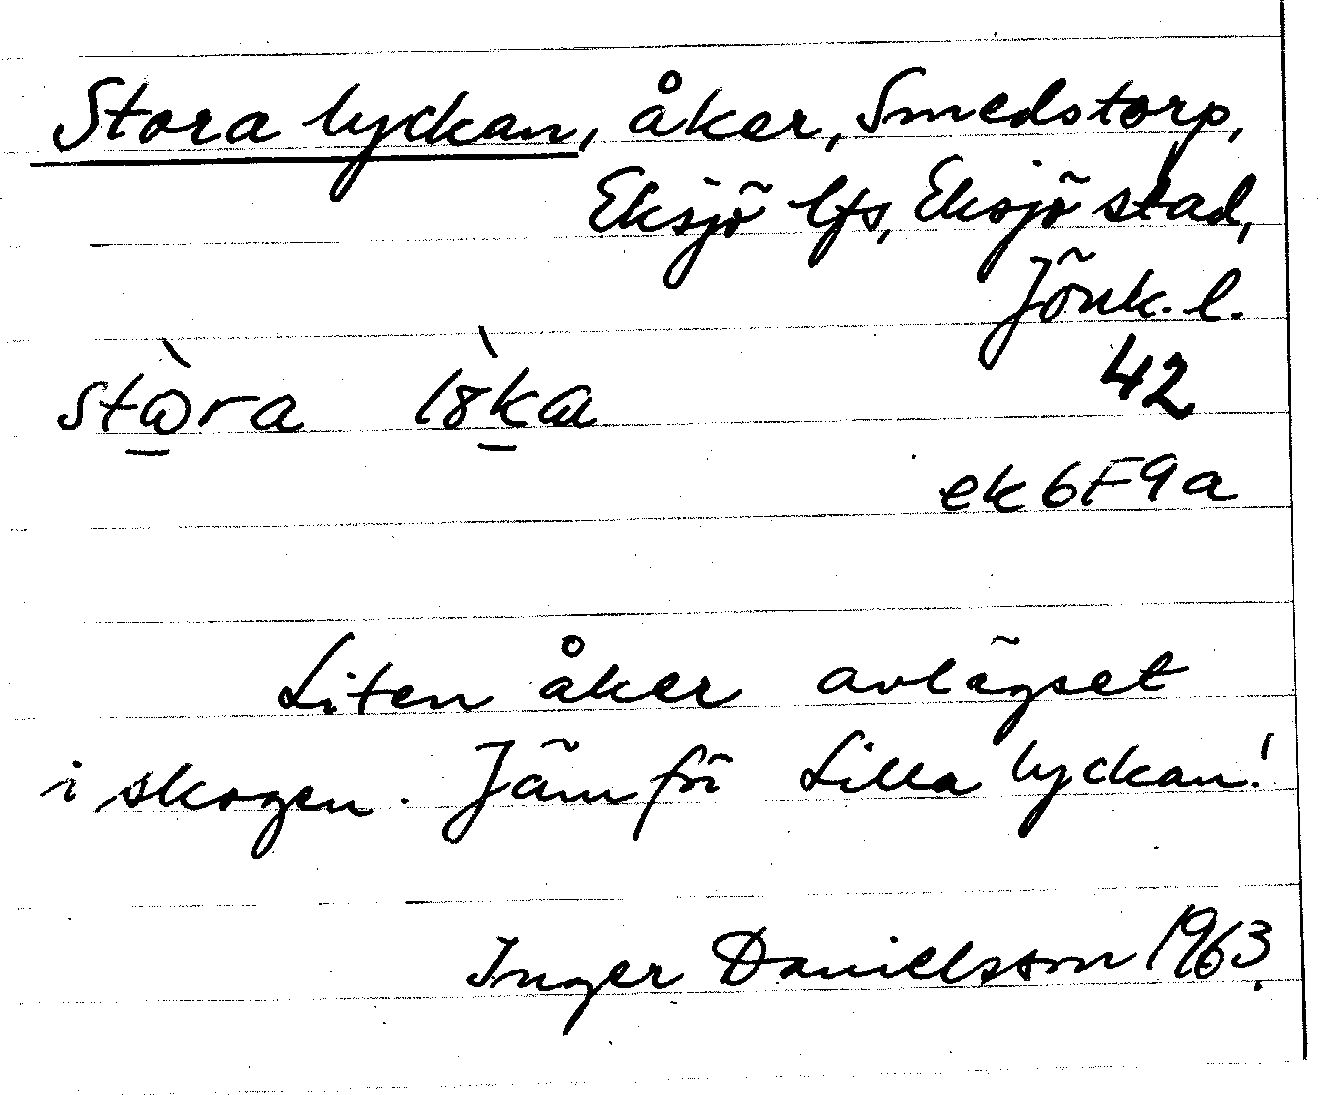 Stora lyckan, åker, Smedstorp,
Eksjö lfs, Eksjö stad,
Jönk. l.
42
ek 6F9a
Liten åker avlägset
i skogen. Jämför Lilla lyckan!
Inger Danielsson 1963.